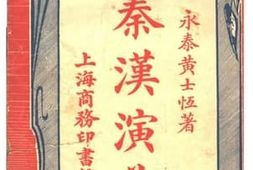 永泰黄士恆著
秦漢演
上海商務印書